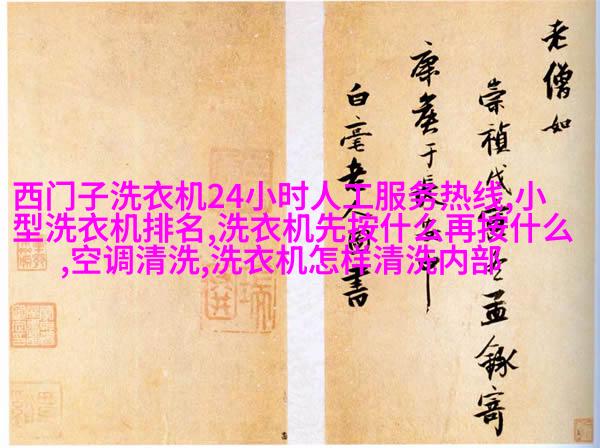 西门子洗衣机24小时人工服务热线,小
型洗衣机排名,洗衣机先按什么再按什么
,空调清洗,洗衣机怎样清洗内部
老僧如
崇禎戊寅孟錄寄
康侯于長
白毫圖書